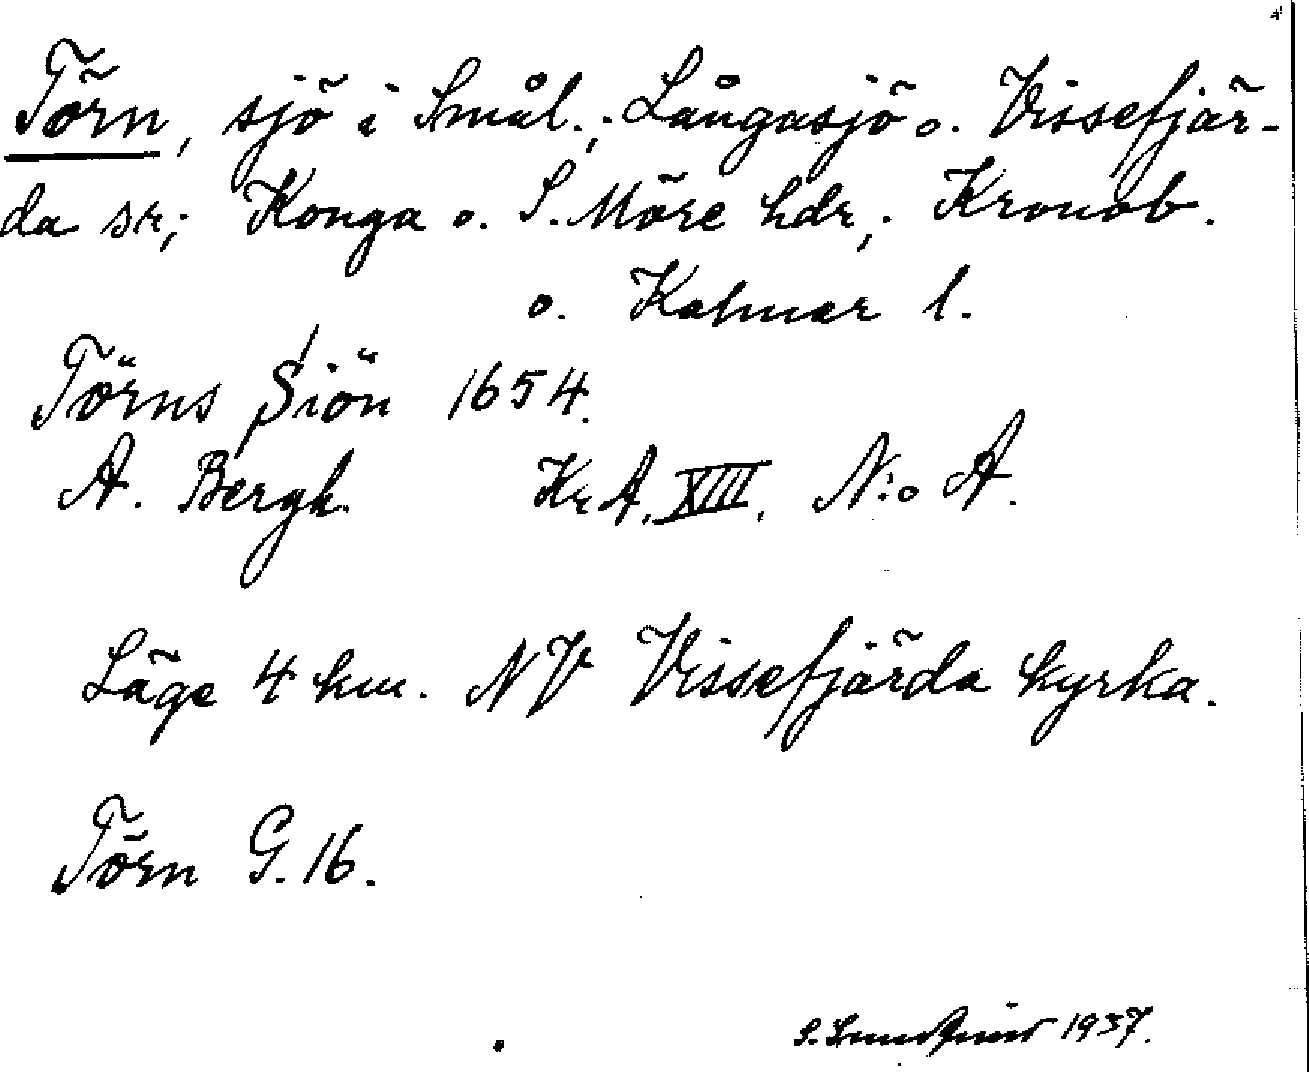 Törn, sjö i Smål.; Långasjö o. Vissefjär-
da sr; Konga o. S. Möre hdr; Kronob.
o. Kalmar l.
Törns Siön 1654.
A. Bergh. KrA. XIII. N:o A.
Läge 4 km. NV Vissefjärda kyrka.
Törn G. 16.
S. 1937.